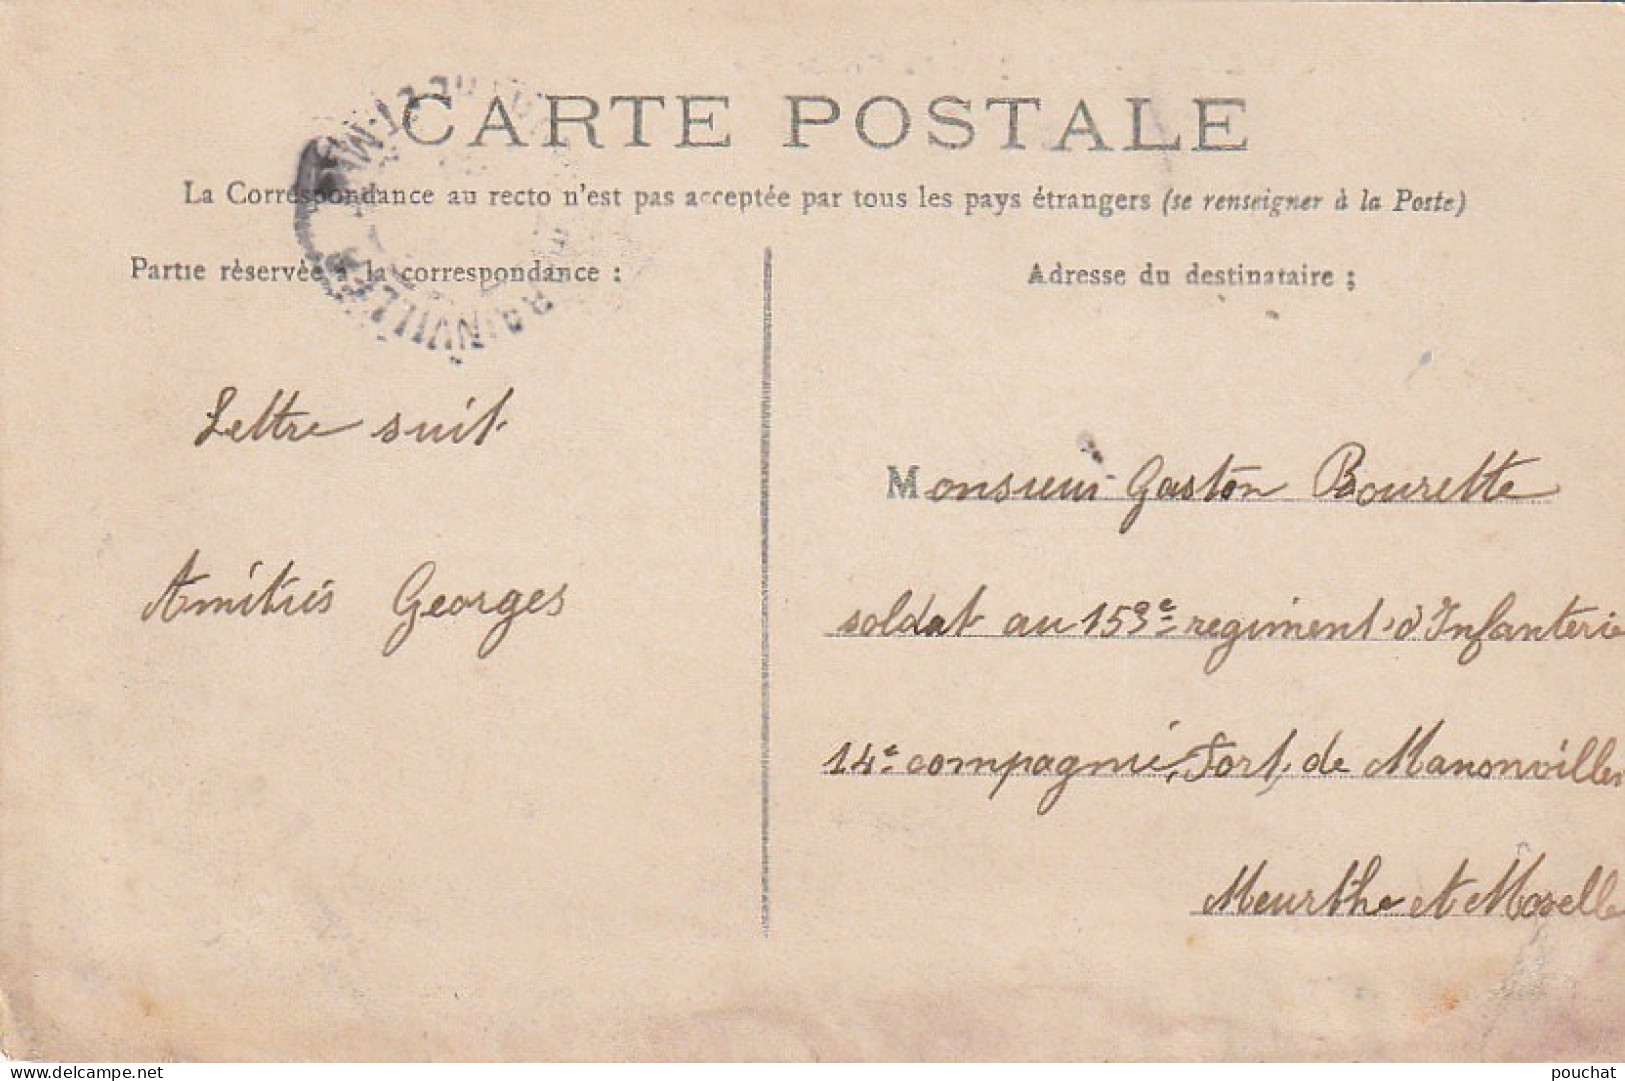 CARTE POSTALE
La Correspondance au recto n'est pas acceptée par tous les pays étrangers (se renseigner à la Poste)
Partie réservée à la correspondance :
Adresse du destinataire ;
Lettre suit
Amitiés Georges
Monsieur Gaston Bourette
soldat au 153e regiment d'Infanterie
14e compagnie, Fort de Manonviller
Meurthe et Moselle
delcampe.net
pouchat